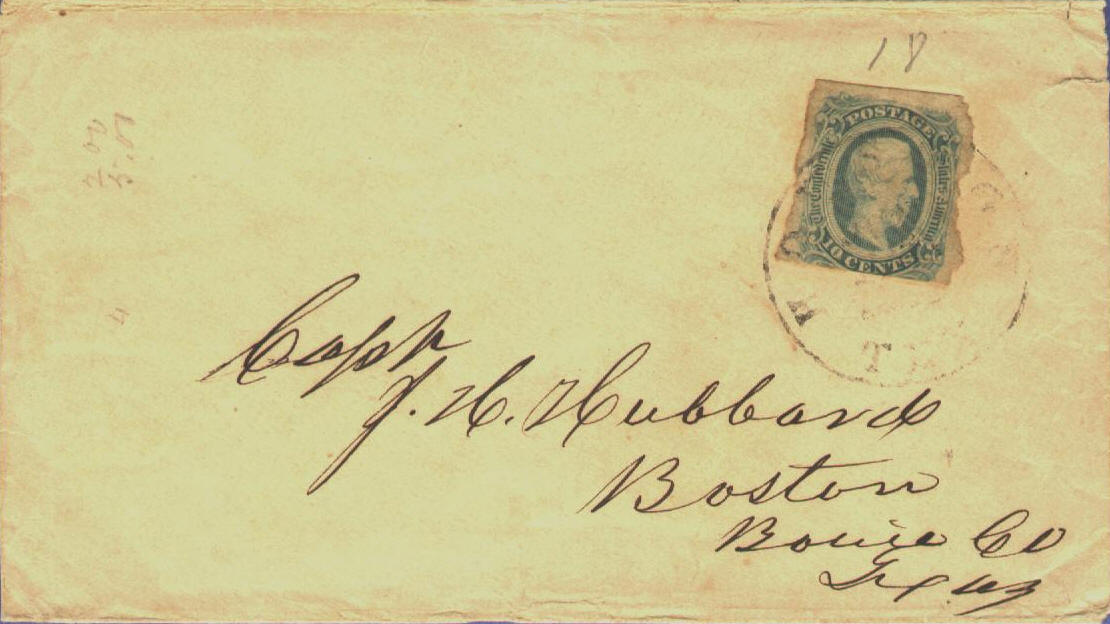 18
POSTAGE
The Confederate States America
10 CENTS
Capt
J. H. Hubbard
Boston
Bowie Co
Texas